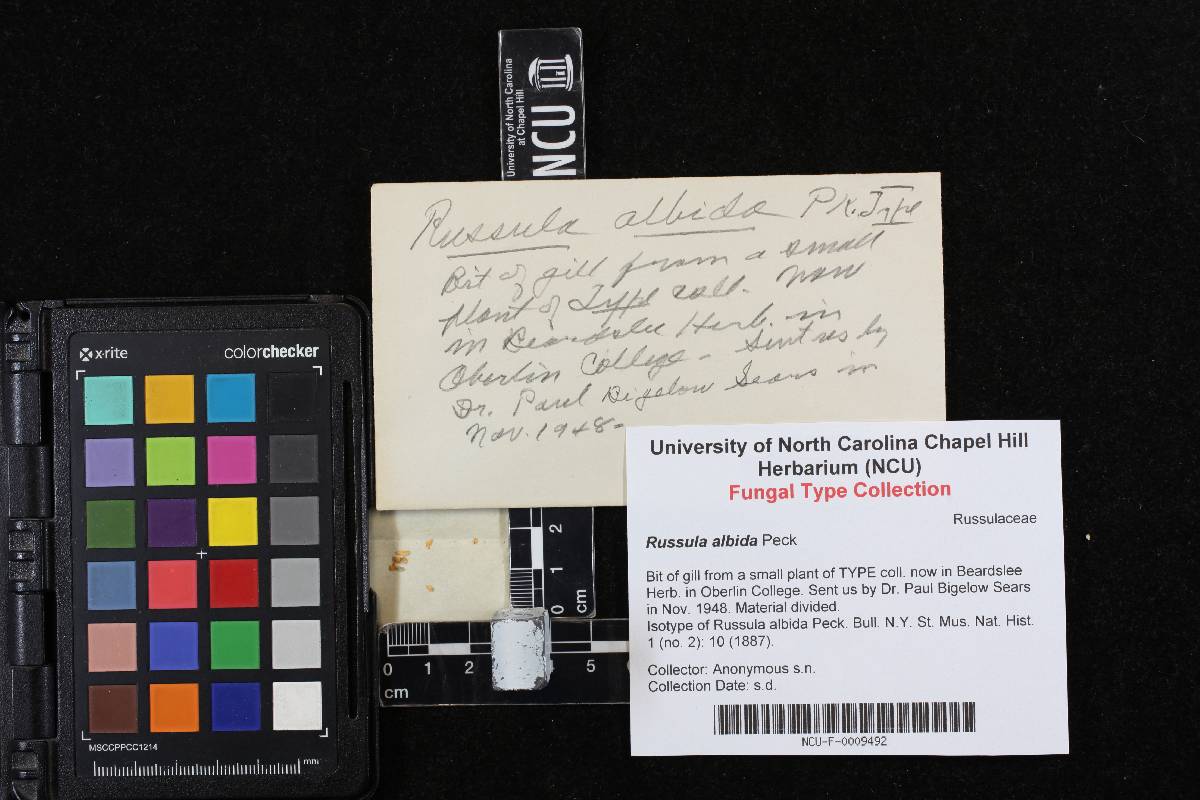 University of North Carolina
at Chapel Hill
NCU
Russula albida Pk. Type
Bit of gill from a small
plant of Type coll. now
in Beardslee Herb. in
Oberlin College - Sent us by
Dr. Paul Bigelow Sears in
Nov. 1948-
x-rite
colorchecker
MSCCPPCC1214
mm
2
1
0
cm
0
1
2
5
cm
University of North Carolina Chapel Hill
Herbarium (NCU)
Fungal Type Collection
Russulaceae
Russula albida Peck
Bit of gill from a small plant of TYPE coll. now in Beardslee
Herb. in Oberlin College. Sent us by Dr. Paul Bigelow Sears
in Nov. 1948. Material divided.
Isotype of Russula albida Peck. Bull. N.Y. St. Mus. Nat. Hist.
1 (no. 2): 10 (1887).
Collector: Anonymous s.n.
Collection Date: s.d.
NCU-F-0009492